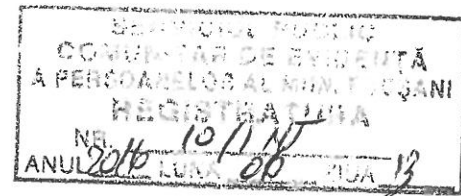 SERVICIUL PUBLIC
COMUNITAR DE EVIDENȚĂ
A PERSOANELOR AL MUN. FOCȘANI
REGISTRATURA
NR.
ANUL 2016 LUNA 06 ZIUA 13